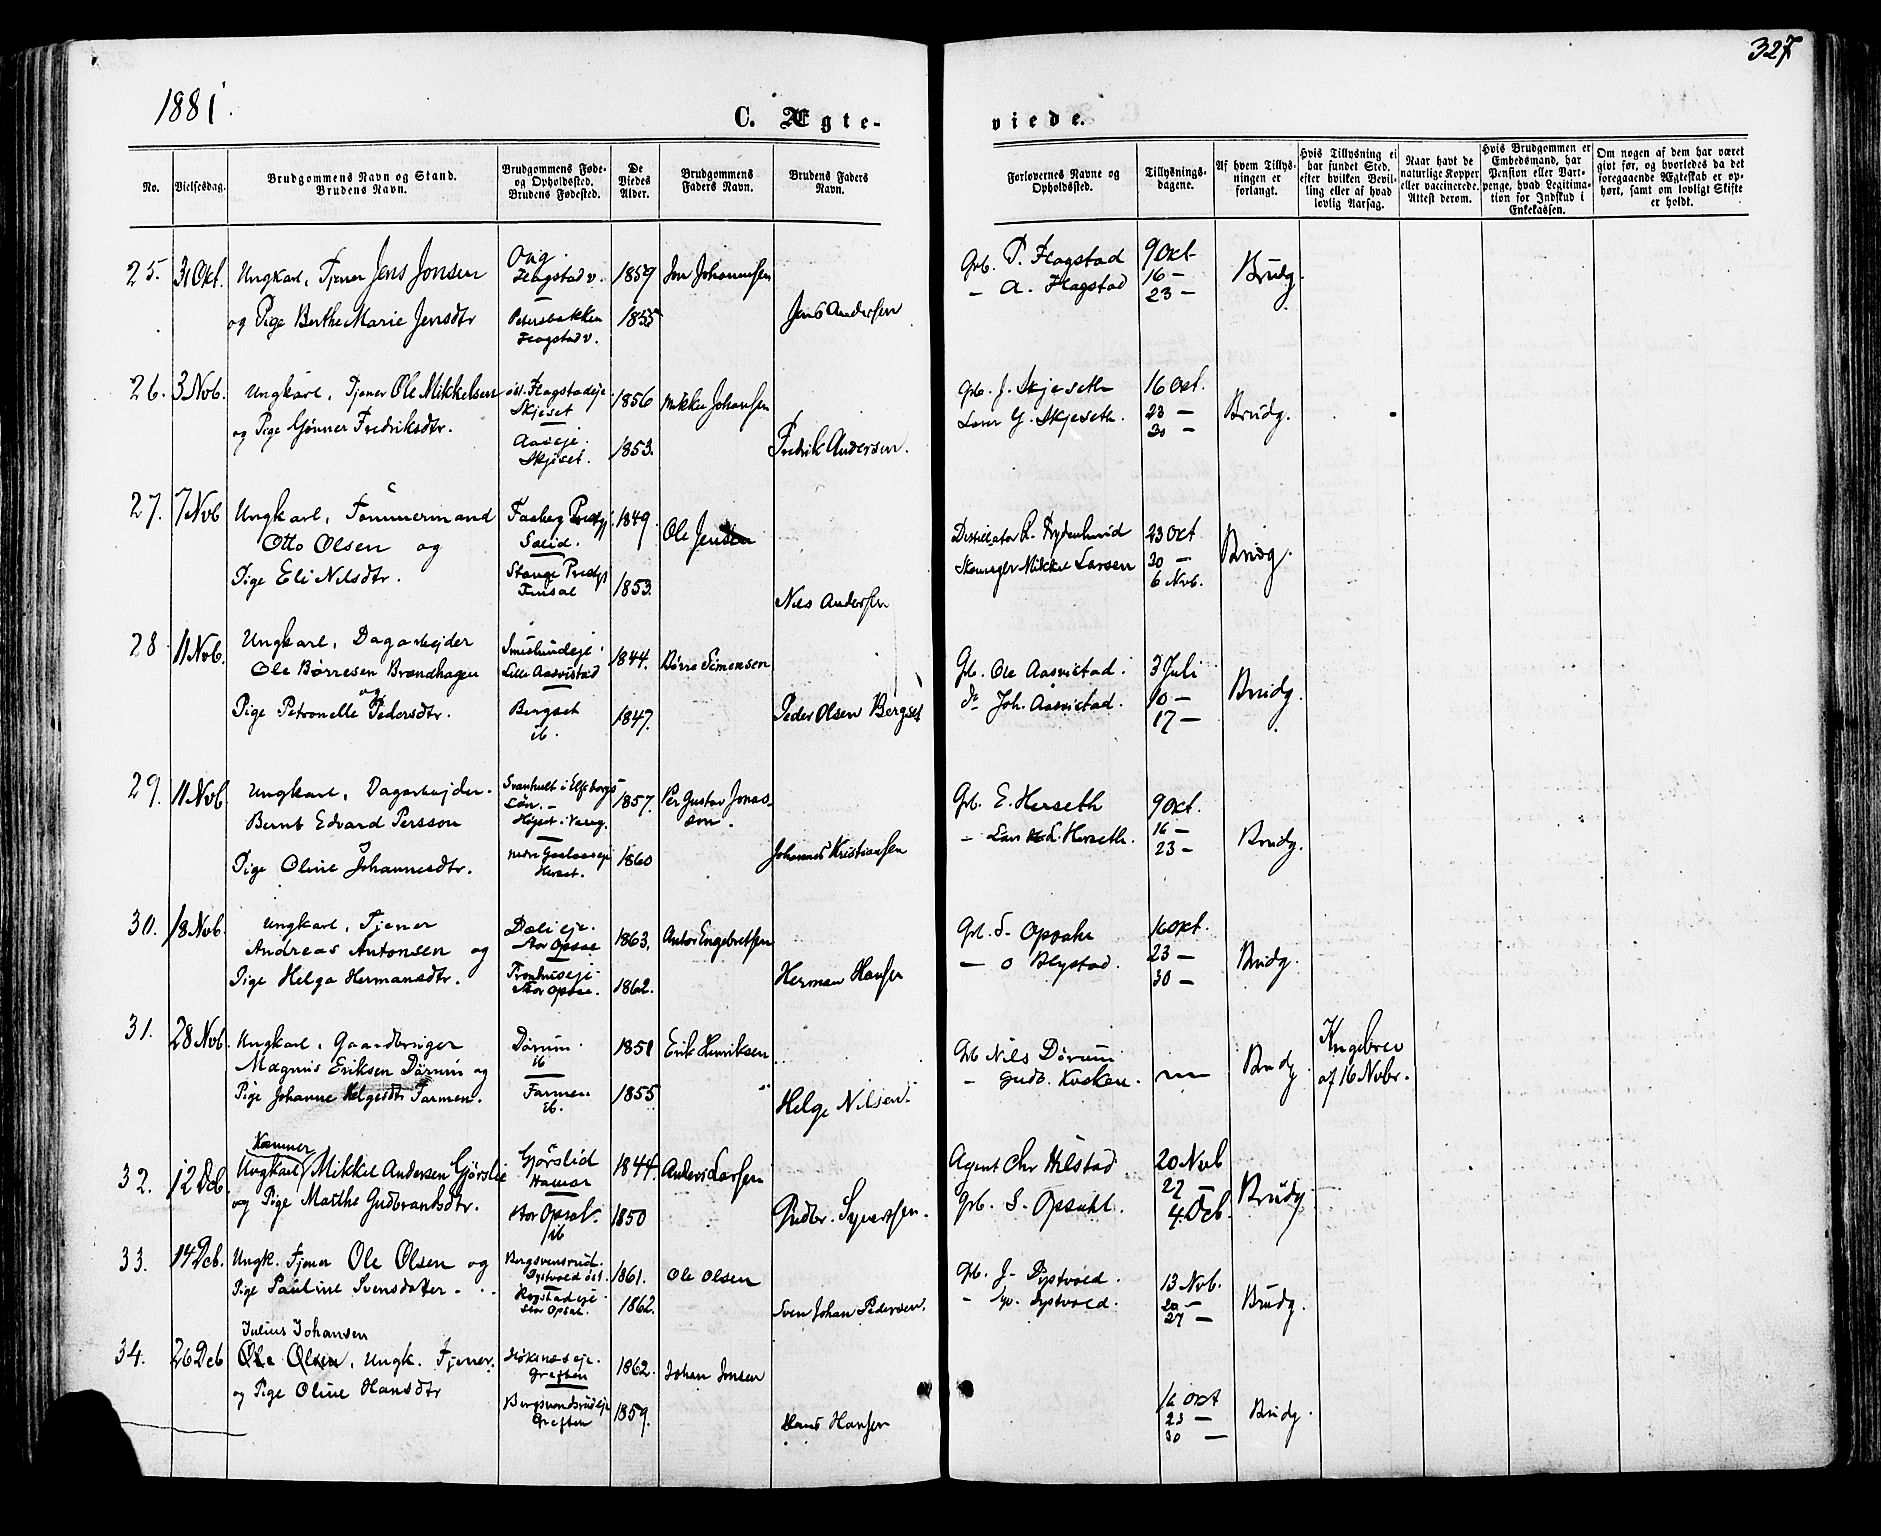 327
1881.
C. Ægte-
viede.
No.
Vielsesdag.
Brudgommens Navn og Stand.
Brudens Navn.
Brudgommens Føde-
og Opholdssted.
Brudens Fødested.
De
Viedes
Alder.
Brudgommens
Faders Navn.
Brudens Faders
Navn.
Forlovernes Navne og
Opholdssted.
Tillysnings-
dagene.
Af hvem Tillys-
ningen er
forlangt.
Hvis Tillysning ei
har fundet Sted,
efter hvilken Bevil-
ling eller af hvad
lovlig Aarsag.
Naar havt de
naturlige Kopper
eller vaccinerede.
Attest derom.
Hvis Brudgommen er
Embedsmand, har
Pension eller Vart-
penge, hvad Legitima-
tion for Indskud i
Enkekassen.
Om nogen af dem har været
gift før, og hvorledes da det
foregaaende Ægteskab er op-
hørt, samt om lovligt Skifte
er holdt.
25. 31 Okt. Ungkarl, Tjener Jens Jonsen
og Pige Berthe Marie Jensdtr
Flagstad v.
Petersbakken
Flagstad v.
1859
1855
Jon Johannesen
Jens Andersen
Grb. P. Flagstad
— A. Flagstad
9 Okt
16 —
23 —
Brudg.
26. 3 Nov. Ungkarl, Tjener Ole Mikkelsen
og Pige Gønner Fredriksdtr.
øst. Flagstadeje
Skjeset
Aaseje.
Skjeset.
1856
1853.
Mikkel Johansen
Fredrik Andersen.
Grb. J. Skjeseth
Larer G. Skjeseth.
16 Oct.
23 —
30 —
Brudg.
27. 7 Nov Ungkarl, Tømmermand
Otto Olsen og
Pige Eli Nilsdtr.
Faaberg Prestgj
Solid.
Stange Prestgj
Finsal
1849
1853.
Ole Jensen
Nils Andersen
Mikkel Larsen
23 Oct
30 —
6 Nvb.
Brudg.
28 11 Nov. Ungkarl, Dagarbejder
Ole Børresen Brændhagen
og
Pige Petronelle Pedersdtr.
Lille Aasvistad
Bergset
ib.
1844.
1847.
Børre Simensen
Peder Olsen Bergset
Gb. Ole Aasvistad.
do Joh. Aasvistad.
3 Juli
10 —
17 —
Brudg.
29. 11 Nov Ungkarl, Dagarbejder.
Bernt Edvard Persson
Pige Oline Johannesdtr.
Svanhult i Elfsborgs
Län. —
Højset i Vang.
nedre Gaalaaseje
Herset.
1857.
1860
Per Gustav Jonas-
son.
Johannes Kristiansen
Grb. E. Herseth
— Lars L. Herseth.
9 Okt.
16 —
23 —
Brudg.
30. 18 Nov. Ungkarl, Tjener
Andreas Antonsen og
Pige Helga Hermansdtr.
Dalieje.
Stor Opsal
Tronhuseje.
Stor Opsal.
1863.
1862.
Anton Engebretsen
Herman Hansen
Grb. S. Opsahl
— O Blystad.
16 Oct.
23 —
30 —
Brudg.
31. 28 Nov. Ungkarl, Gaardbruger
Magnus Eriksen Dørum og
Pige Johanne Helgesdtr Farmen.
Dørum.
ib
Farmen
ib.
1851
1855
Erik Henriksen
Helge Nilsen.
Grb Nils Dørum
— Gudb. Kosken.
Brudg.
Kngebrev
af 16 Novbr.
32. 12 Dcb.
Ungkarl Mikkel Andersen Gjørslie
og Pige Marthe Gudbrandsdtr.
Gjørslid
Hamar
Stor Opsal.
ib
1844.
1850
Anders Larsen
Gudbr. Syversen.
Agent Chr Hilstad.
Grb. S. Opsahl.
20 Nvb
27 —
4 Dcb.
Brudg.
33. 14 Dcb. Ungk. Tjener Ole Olsen og
Pige Pauline Svensdatter.
Bergsvensrud.
Dystvold øst.
Rogstadeje
Stor Opsal.
1861.
1862.
Ole Olsen
Sven Johan Pedersen.
Gb. J. Dystvold.
13 Nvb.
20 —
27 —
Brudg.
34. 26 Dcb
Julius Johansen
Ole Olsen, Ungk. Tjener.
og Pige Oline Hansdtr
Greften
Bergsvendsrudeje
Greften
1862.
1859.
Johan Jonsen
Hans Hansen
16 Oct
23 —
30 —
Brudg.